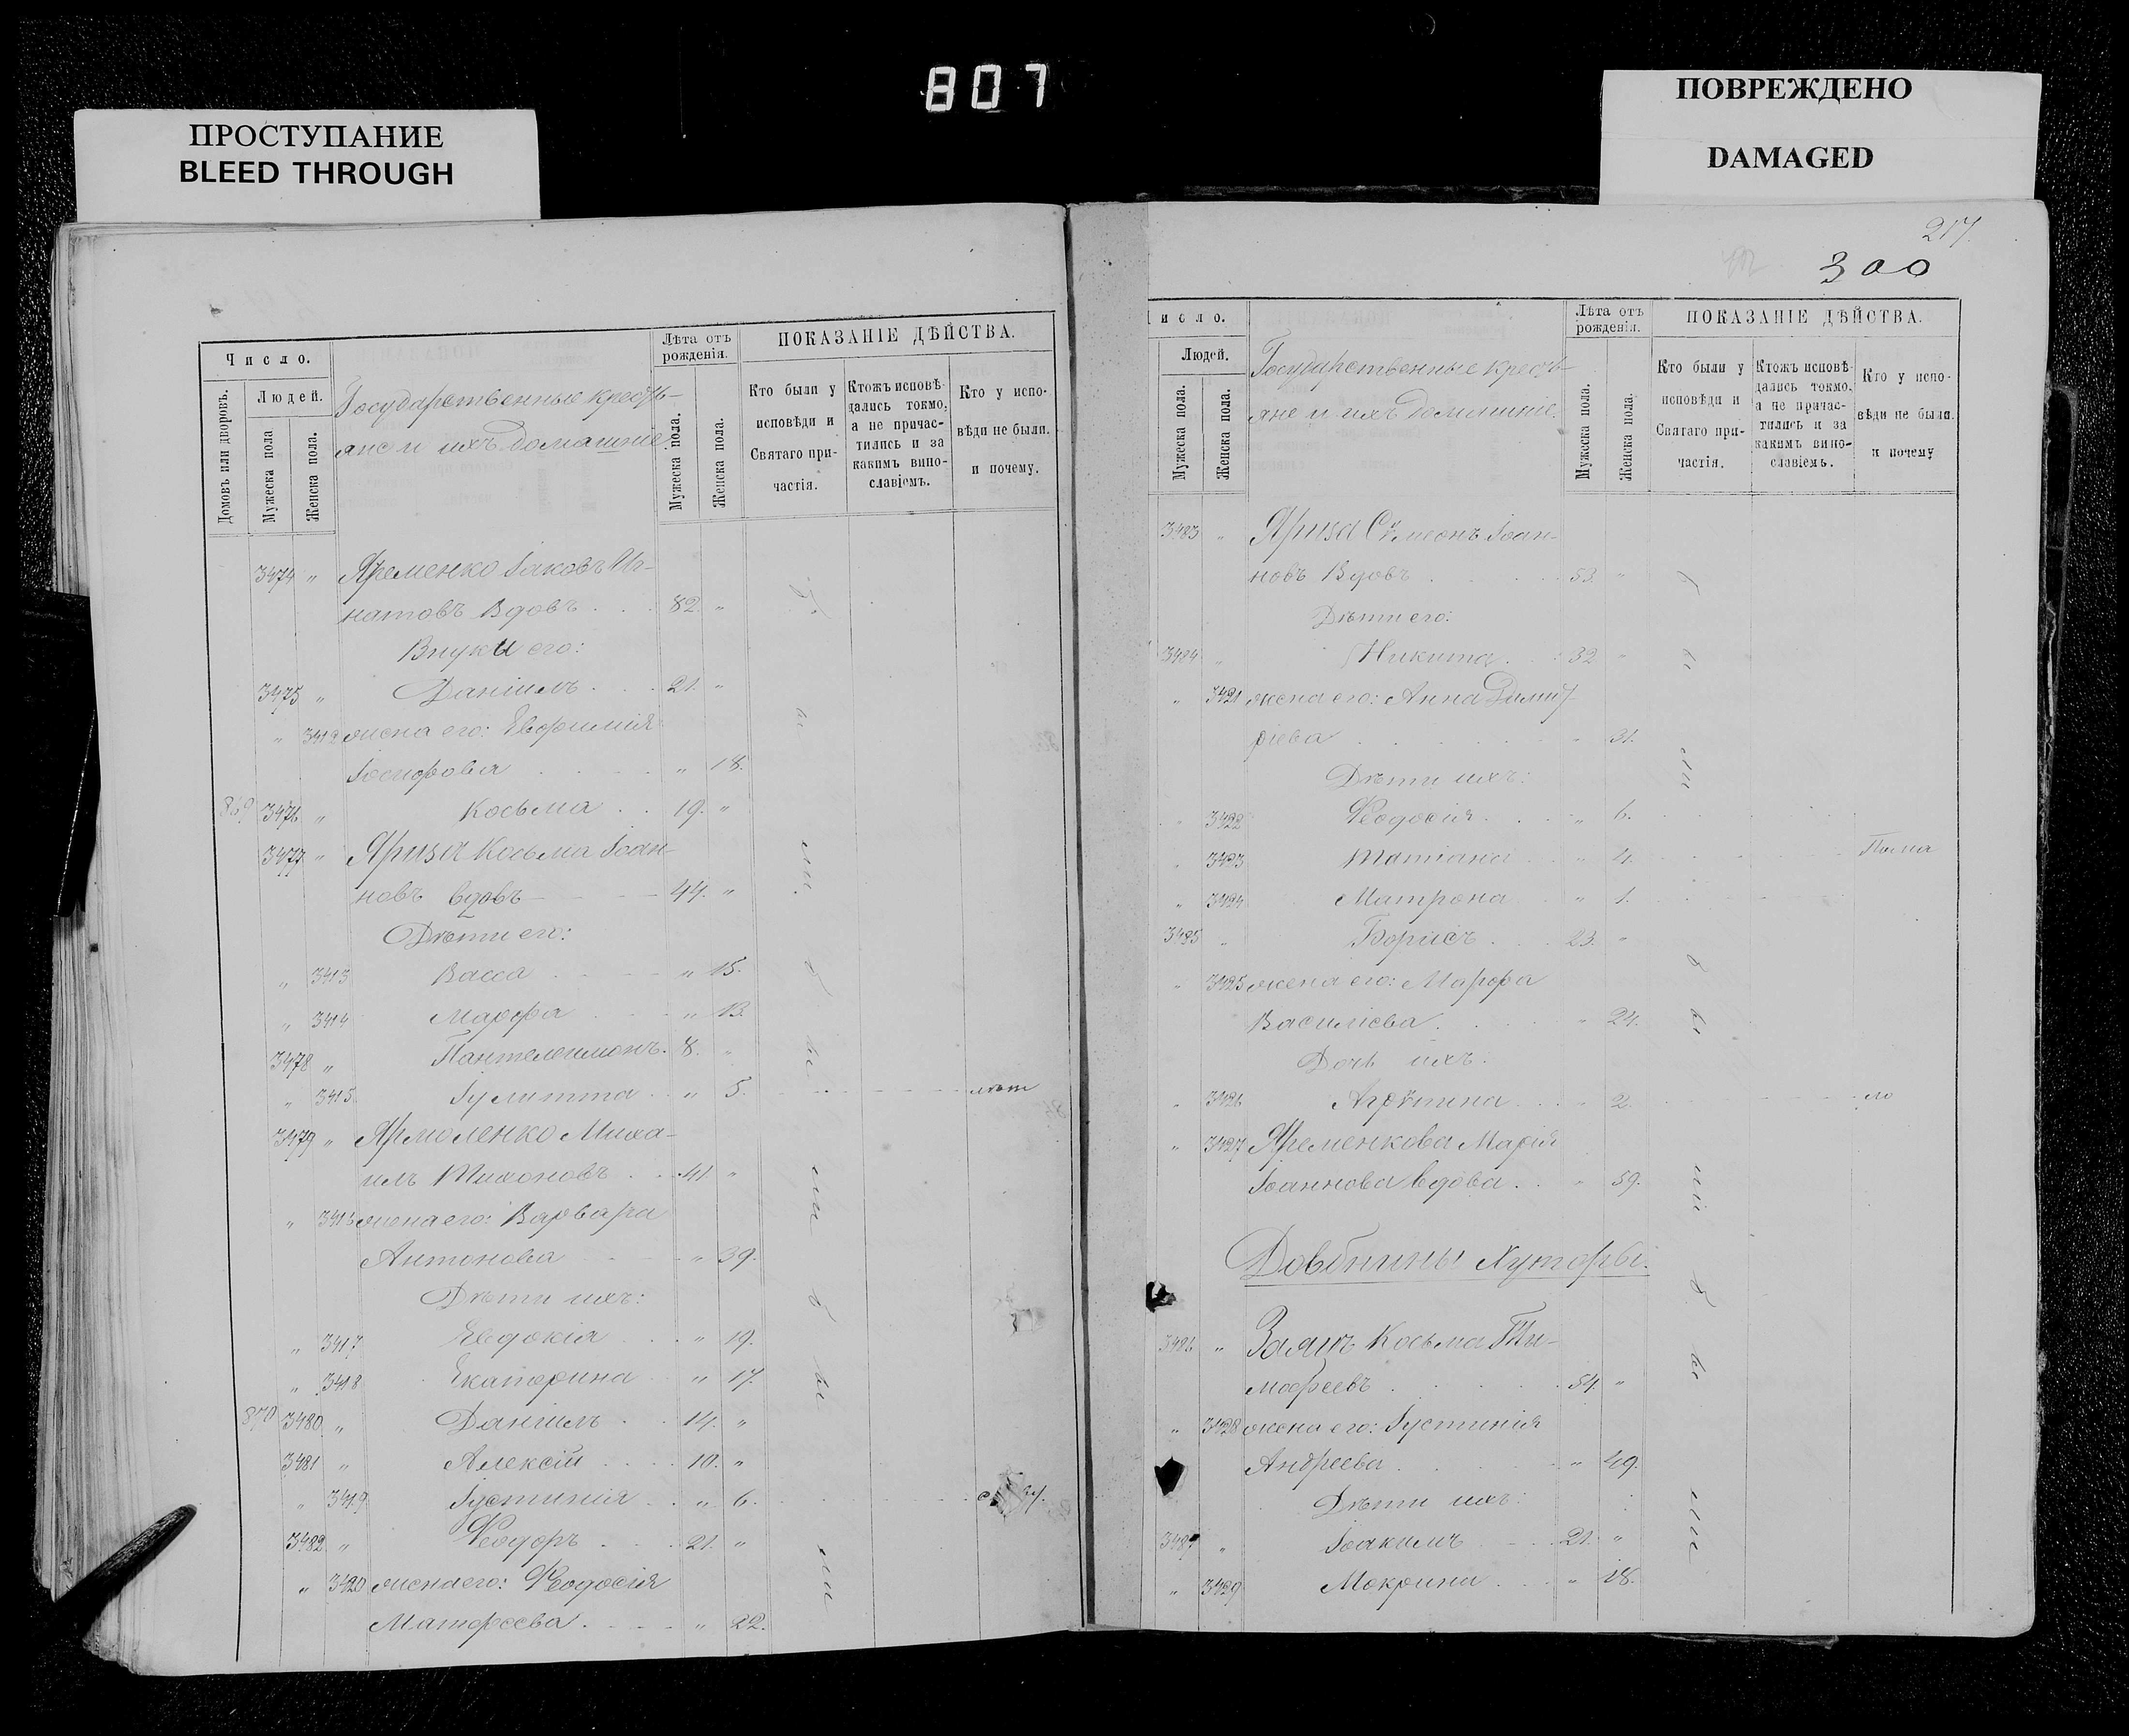 807
ПРОСТУПАНИЕ
BLEED THROUGH
ПОВРЕЖДЕНО
DAMAGED
Число.
Домовъ или дворовъ.
Людей.
Мужеска пола
Женска пола.
Государственные кресть-
яне и ихъ домашніе
Лѣта отъ рожденія.
Мужеска пола.
Женска пола.
ПОКАЗАНІЕ ДѢЙСТВА.
Кто были у исповѣди и Святаго при-частія.
Ктожъ исповѣ-дались токмо, а не причас-тились и за какимъ вино-славіемъ.
Кто у испо-вѣди не были. и почему.
3474 " Яременко Іаковъ Иг-
натовъ Вдовъ . . . 82. "
Внуки его:
3475 " Даніилъ . . . 21. "
" 3412 жена его: Евфимія
Іосифова . . . " 18.
869 3476 " Косьма . . 19. "
3477 " Яриза Косьма Іоан-
новъ вдовъ 44. "
Дѣти его:
" 3413 Васса " 15.
" 3414 Марфа " 13.
3478 " Пантелеимонъ. 8. "
" 3415 Іулитта . . " 5. лѣт
3479 " Ярмоленко Миха-
илъ Тихоновъ . . 41. "
" 3416 жена его: Варвара
Антонова " 39.
Дѣти ихъ:
" 3417 Евдокія . . " 19.
" 3418 Екатерина " 17.
870 3480 " Даніилъ . . 14. "
3481 " Алексій . . . . 10. "
" 3419 Іустинія . . " 6.
3482 " Ѳеодоръ . . . 21. "
" 3420 жена его: Ѳеодосія
Матфеева . . . " 22.
были
были
были
217.
300
исло.
Людей.
Мужеска пола.
Женска пола.
Государственные кресть-
яне и ихъ домашніе.
Лѣта отъ рожденія.
Мужеска пола.
Женска пола.
ПОКАЗАНІЕ ДѢЙСТВА.
Кто были у исповѣди и Святаго при-частія.
Ктожъ исповѣ-дались токмо, а не причас-тились и за какимъ вино-славіемъ.
Кто у испо-вѣди не были. и почему
3483 " Яриза Сѵмеонъ Іоан-
новъ Вдовъ . . . 53. "
Дѣти его:
3484 " Никита . . 32 "
" 3421 жена его: Анна Димит-
ріева . . . " 31.
Дѣти ихъ:
3422 Ѳеодосія . . . " 6.
" 3423 Татіана " 4.
" 3424 Матрона " 1.
3485 " Борисъ . . . 23. "
" 3425 жена его: Марфа
Василіева . . . " 24.
Дочь ихъ:
" 3426 Агрѵпина . . " 2. ло
" 3427 Яременкова Марія
Іоаннова вдова . . " 59.
Довбнины Хуторы.
3486 " Заяцъ Косьма Ти-
мофеевъ . . . 54. "
" 3428 жена его: Іустинія
Андреева . . . " 49.
Дѣти ихъ:
3487 " Іоакимъ . . . 21. "
" 3429 Мокрина . . . " 18.
были
были
были